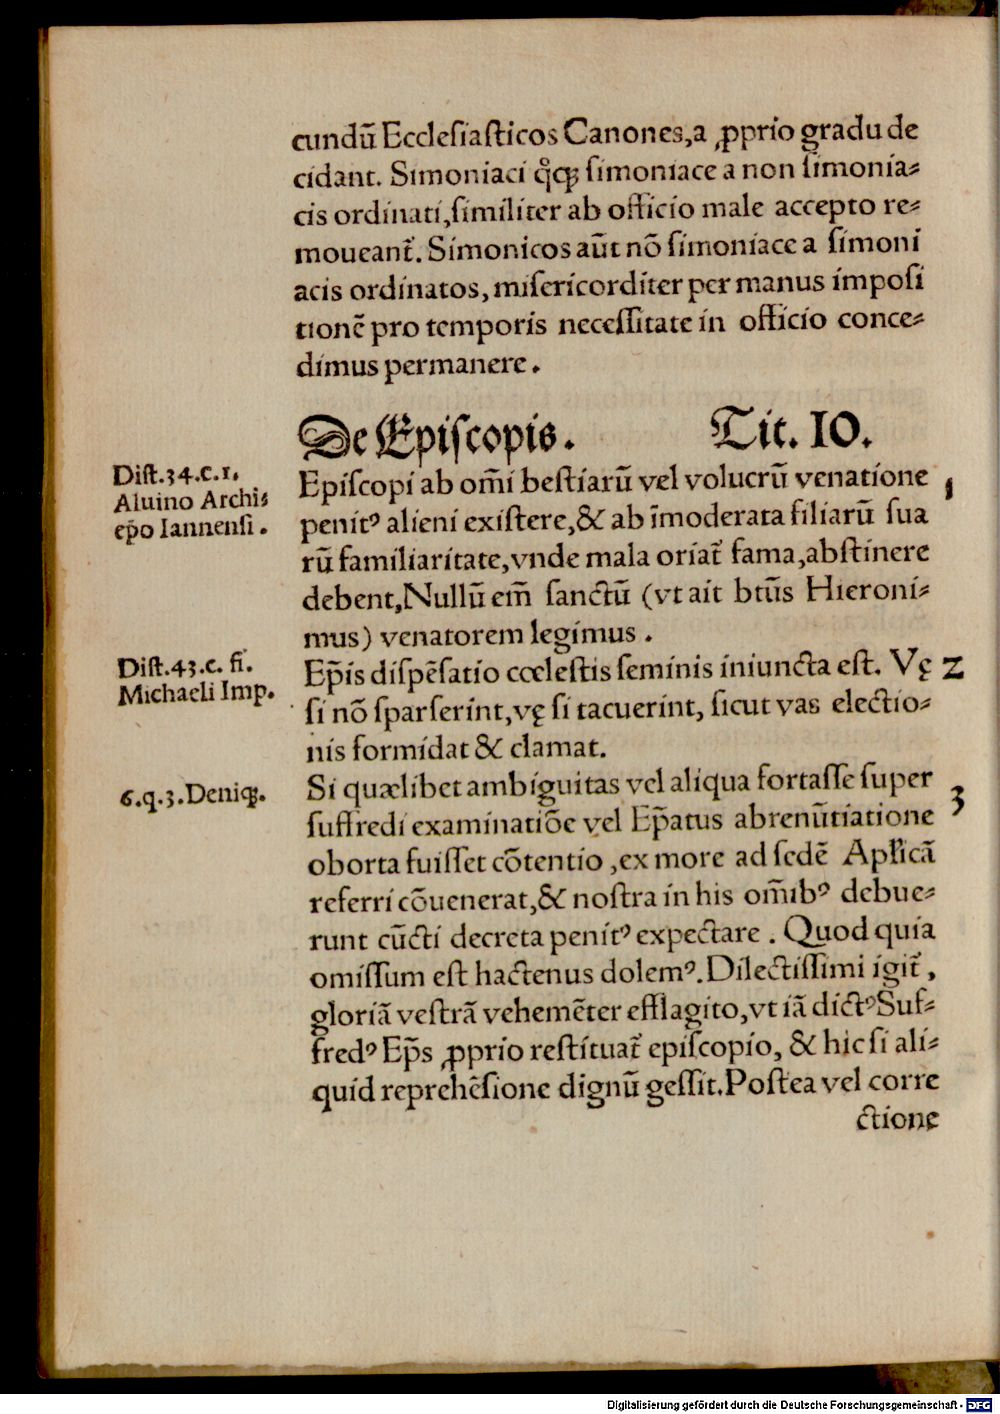 cundū Eccleſiaſticos Canones,a ꝓprio gradu de
cidant. Simoniaci qͥcꝗ ſimoniace a non ſimonia⸗
cis ordinati,ſimiliter ab officio male accepto re⸗
moueant᷑. Simonicos aūt nō ſimoniace a ſimoni
acis ordinatos, miſericorditer per manus impoſi
tionē pro temporis neceſſitate in officio conce⸗
dimus permanere.
De Epiſcopis. Tit. 10.
Diſt.34.c.1.
Aluino Archi⸗
ep̄o Iannenſi.
Epiſcopi ab om̄i beſtiarū vel volucrū venatione 1
penitꝰ alieni exiſtere,& ab īmoderata filiarū ſua
rū familiaritate,vnde mala oriat᷑ fama,abſtinere
debent,Nullū em̄ ſanctū (vt ait btūs Hieroni⸗
mus) venatorem legimus.
Diſt.43.c. fi.
Michaeli Imp.
Ep̄is diſpēſatio cœleſtis ſeminis iniuncta eſt. Vę 2
ſi nō ſparſerint,vę ſi tacuerint, ſicut vas electio⸗
nis formidat & clamat.
6.q.3.Deniqꝫ.
Si quælibet ambiguitas vel aliqua fortaſſe ſuper 3
ſuffredi examinatiōe vel Ep̄atus abrenūtiatione
oborta fuiſſet cōtentio,ex more ad ſedē Apl̄icā
referri cōuenerat,& noſtra in his om̄ibꝰ debue⸗
runt cūcti decreta penitꝰ expectare. Quod quia
omiſſum eſt hactenus dolemꝰ.Dilectiſſimi igit᷑,
gloriā veſtrā vehemēter efflagito,vt iā dictꝰ Suf⸗
fredꝰ Ep̄s ꝓprio reſtituat᷑ epiſcopio, & hic ſi ali⸗
quid reprehēſione dignū geſſit.Poſtea vel corre
ctione
Digitalisierung gefördert durch die Deutsche Forschungsgemeinschaft - DFG